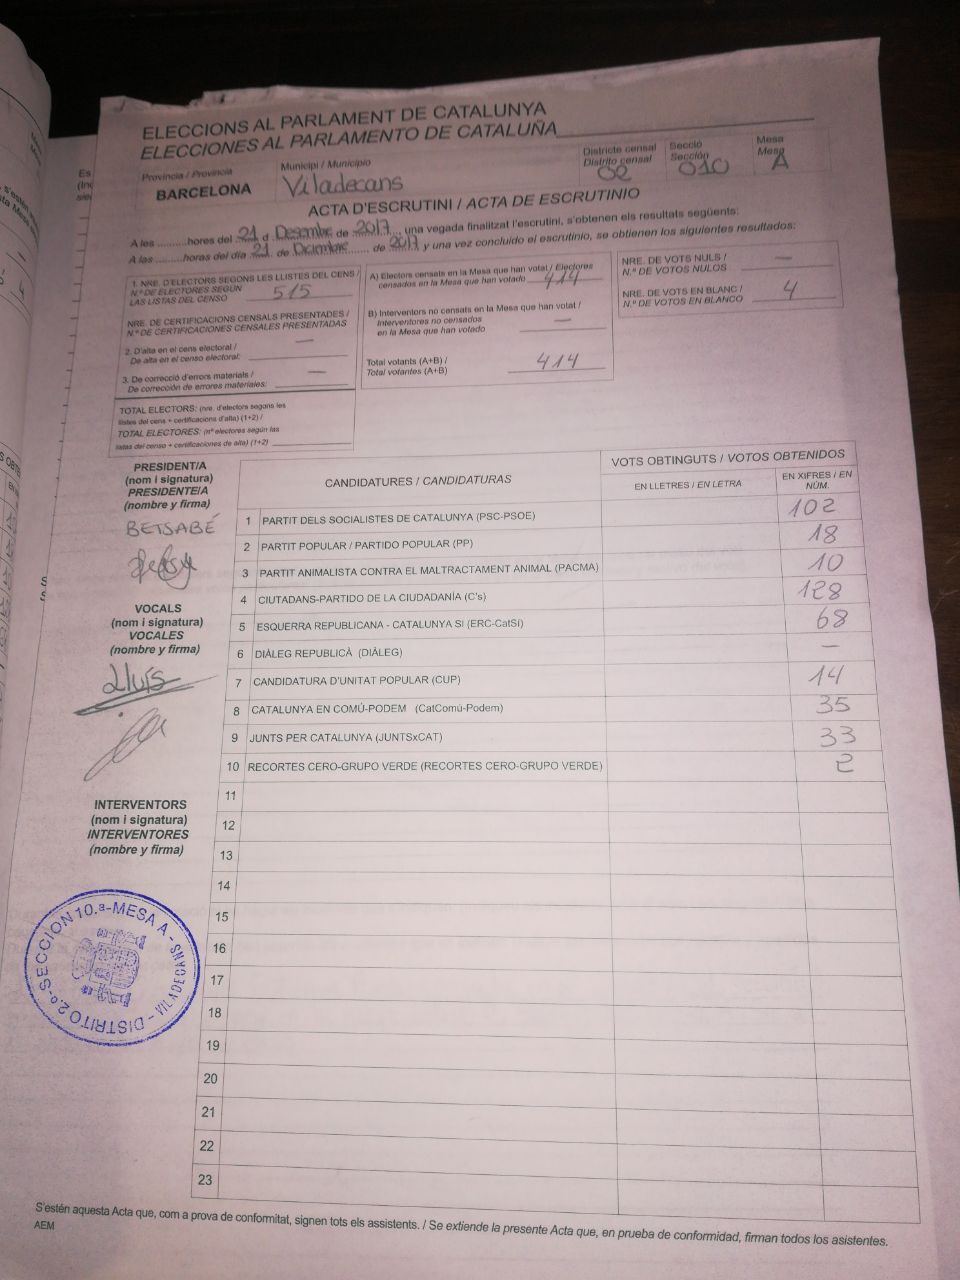 ELECCIONS AL PARLAMENT DE CATALUNYA
ELECCIONES AL PARLAMENTO DE CATALUÑA
Provincia / Provincia
BARCELONA
Municipi / Municipio
Viladecans
Districte censal
Distrito censal
02
Secció
Sección
010
Mesa
Mesa
A
ACTA D'ESCRUTINI / ACTA DE ESCRUTINIO
A les ..........hores del 21 d Desembre de 2017, una vegada finalitzat l'escrutini, s'obtenen els resultats següents:
A las .........horas del día 21 de Diciembre de 2017 y una vez concluido el escrutinio, se obtienen los siguientes resultados:
1. NRE. D'ELECTORS SEGONS LES LLISTES DEL CENS /
N.º DE ELECTORES SEGÚN
LAS LISTAS DEL CENSO
515
NRE. DE CERTIFICACIONS CENSALS PRESENTADES /
N.º DE CERTIFICACIONES CENSALES PRESENTADAS
2. D'alta en el cens electoral /
De alta en el censo electoral:
—
3. De correcció d'errors materials /
De corrección de errores materiales:
—
TOTAL ELECTORS: (nre. d'electors segons les
llistes del cens + certificacions d'alta) (1+2) /
TOTAL ELECTORES: (nº electores según las
listas del censo + certificaciones de alta) (1+2)
A) Electors censats en la Mesa que han votat / Electores
censados en la Mesa que han votado
414
B) Interventors no censats en la Mesa que han votat /
Interventores no censados
en la Mesa que han votado
—
Total votants (A+B) /
Total votantes (A+B)
414
NRE. DE VOTS NULS /
N.º DE VOTOS NULOS
—
NRE. DE VOTS EN BLANC /
N.º DE VOTOS EN BLANCO
4
PRESIDENT/A
(nom i signatura)
PRESIDENTE/A
(nombre y firma)
BETSABÉ
VOCALS
(nom i signatura)
VOCALES
(nombre y firma)
Lluís
INTERVENTORS
(nom i signatura)
INTERVENTORES
(nombre y firma)
CANDIDATURES / CANDIDATURAS
VOTS OBTINGUTS / VOTOS OBTENIDOS
EN LLETRES / EN LETRA
EN XIFRES / EN
NÚM.
1 PARTIT DELS SOCIALISTES DE CATALUNYA (PSC-PSOE) 102
2 PARTIT POPULAR / PARTIDO POPULAR (PP) 18
3 PARTIT ANIMALISTA CONTRA EL MALTRACTAMENT ANIMAL (PACMA) 10
4 CIUTADANS-PARTIDO DE LA CIUDADANÍA (C's) 128
5 ESQUERRA REPUBLICANA - CATALUNYA SI (ERC-CatSí) 68
6 DIÀLEG REPUBLICÀ (DIÀLEG) —
7 CANDIDATURA D'UNITAT POPULAR (CUP) 14
8 CATALUNYA EN COMÚ-PODEM (CatComú-Podem) 35
9 JUNTS PER CATALUNYA (JUNTSxCAT) 33
10 RECORTES CERO-GRUPO VERDE (RECORTES CERO-GRUPO VERDE) 2
11
12
13
14
15
16
17
18
19
20
21
22
23
DISTRITO 2.º - SECCION 10.ª - MESA A - VILADECANS
S'estén aquesta Acta que, com a prova de conformitat, signen tots els assistents. / Se extiende la presente Acta que, en prueba de conformidad, firman todos los asistentes.
AEM